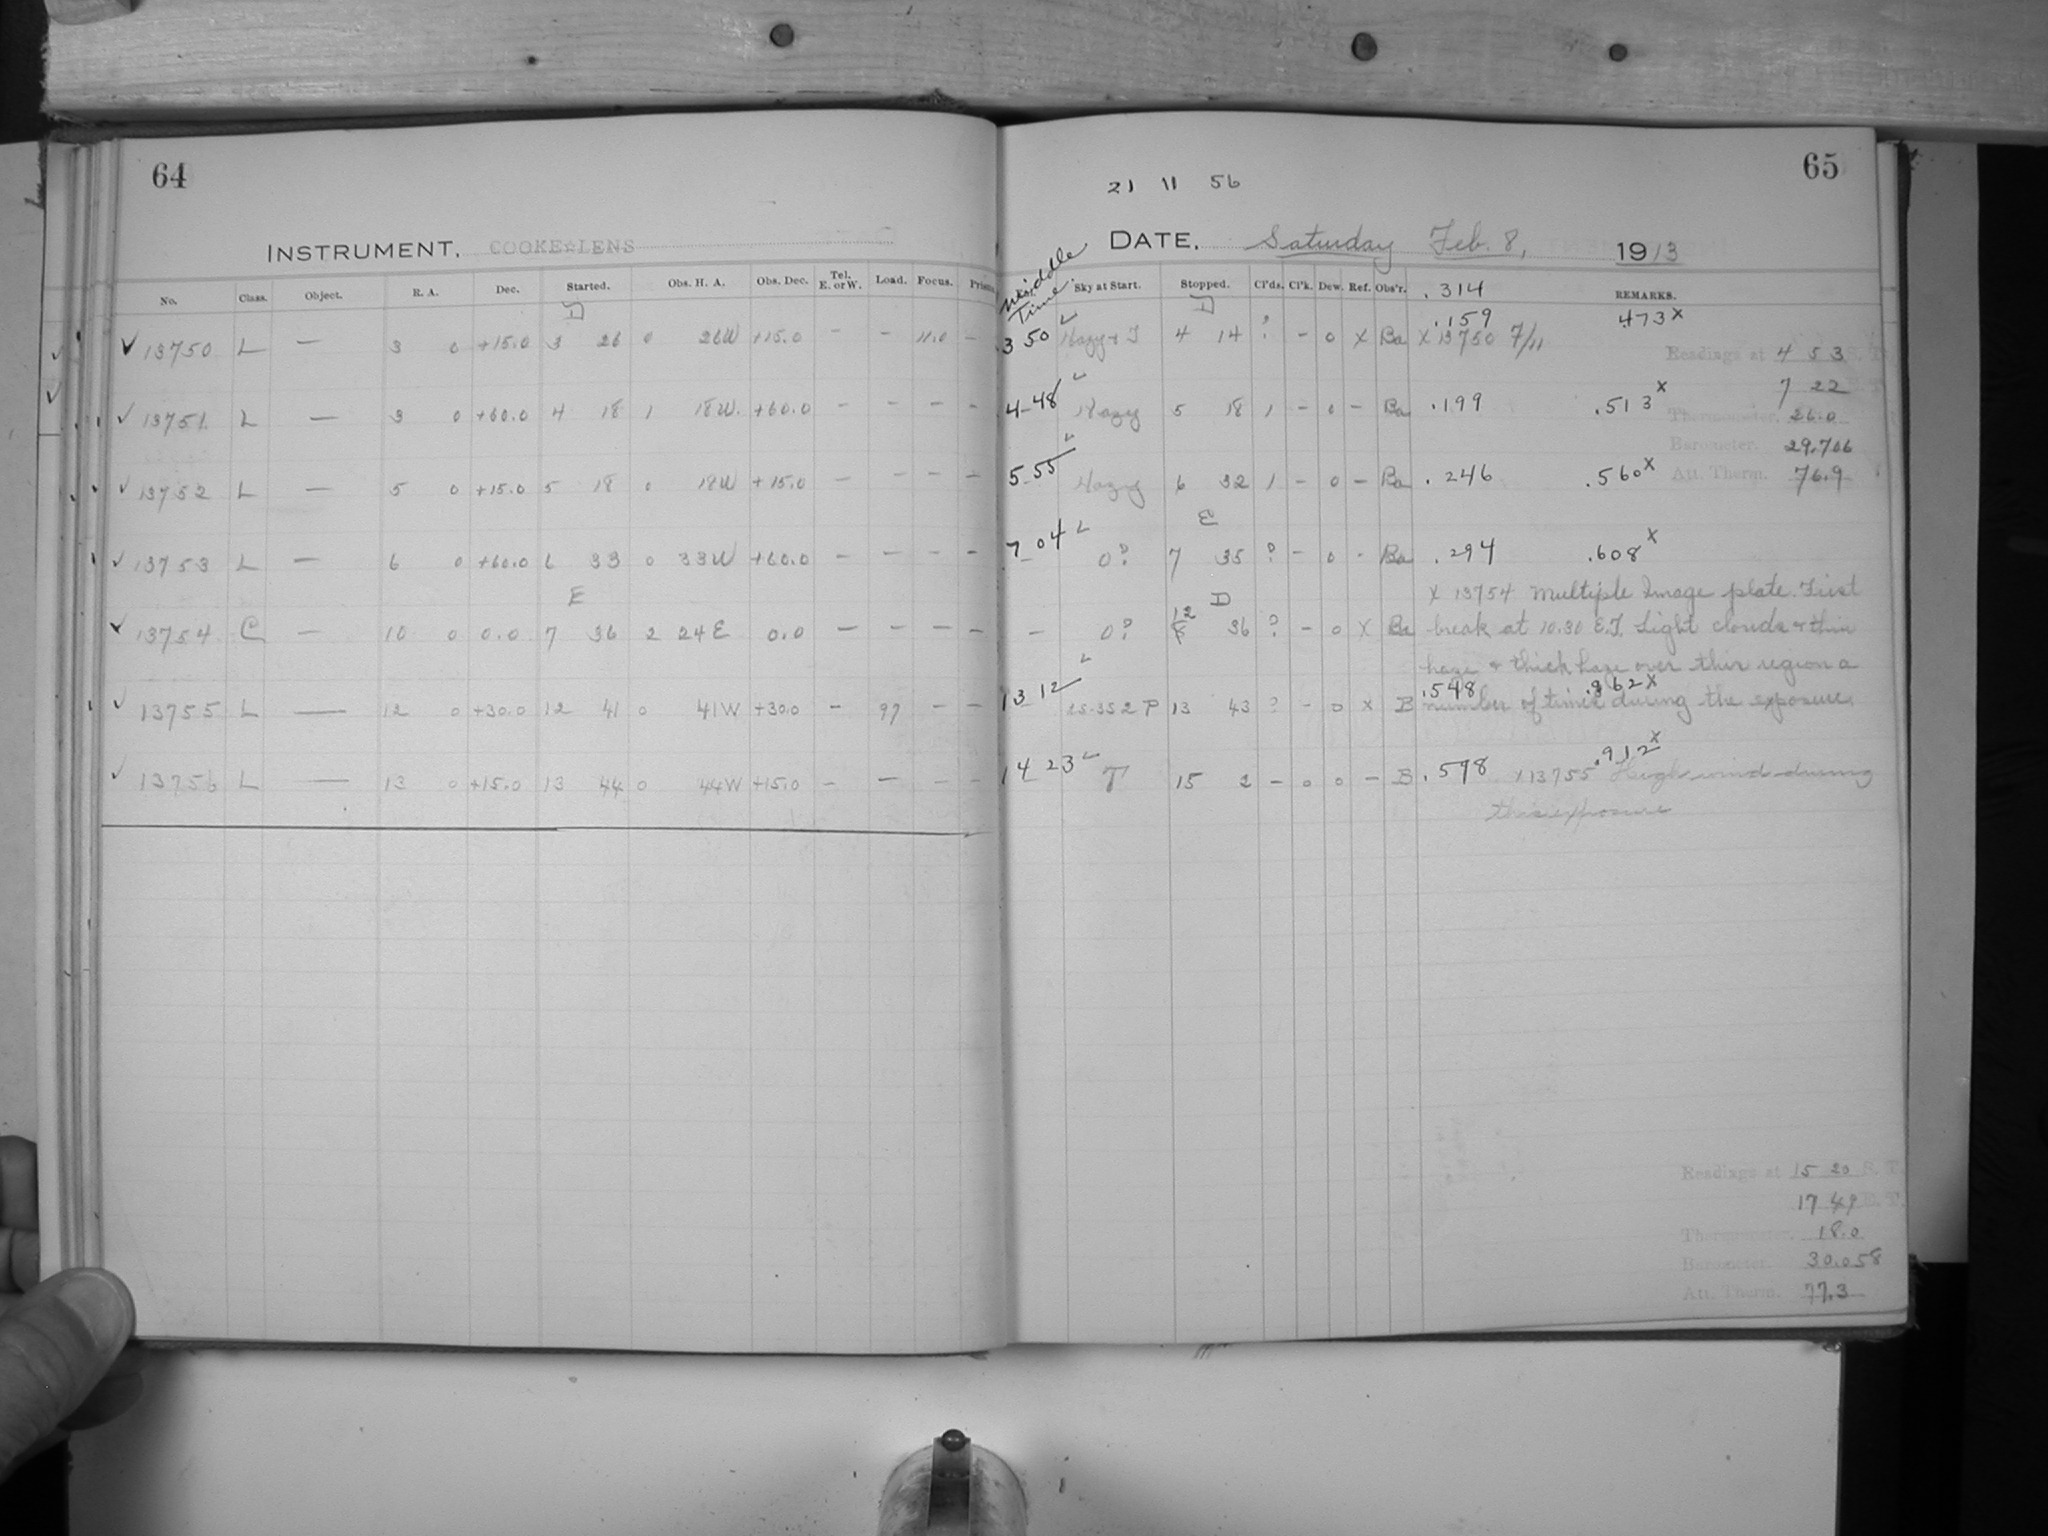 64
INSTRUMENT. COOKE☆LENS
No. Class. Object. R. A. Dec. Started. Obs. H. A. Obs. Dec. Tel. E. or W. Load. Focus.
D
✓ 13750 L — 3 0 +15.0 3 26 0 26W +15.0 - - 11.0 -
✓ 13751 L — 3 0 +60.0 4 18 1 18W. +60.0 - - - -
✓ 13752 L — 5 0 +15.0 5 18 0 18W +15.0 - - - -
✓ 13753 L — 6 0 +60.0 6 33 0 33W +60.0 - - - -
E
✓ 13754 C — 10 0 0.0 7 36 2 24E 0.0 - - - -
✓ 13755 L — 12 0 +30.0 12 41 0 41W +30.0 - 97 - -
✓ 13756 L — 13 0 +15.0 13 44 0 44W +15.0 - - - -
65
21 11 56
DATE. Saturday Feb. 8, 1913
Middle Time. Sky at Start. Stopped. Cl'ds. Cl'k. Dew. Ref. Obs'r. .314 REMARKS.
D .159 .473 x
3 50 ✓ Hazy + T 4 14 ? - 0 X Ba X 13750 7/11
Readings at 4 53 S. T.
7 22
4 48 ✓ Hazy 5 18 1 - 0 - Ba .199 .513 x
Thermometer. 26.0
Barometer. 29.706
5 55 ✓ Hazy 6 32 1 - 0 - Ba .246 .560 x
Att. Therm. 76.9
E
7 04 ✓ 0? 7 35 ? - 0 - Ba .294 .608 x
X 13754 Multiple Image plate. First
D
- 0? 12 36 ? - 0 X Ba break at 10.30 E.T. Light clouds + thin
haze + thick haze over this region a
13 12 ✓ 13 43 ? - 0 X B .548 .862 x
number of times during the exposure.
14 23 ✓ T 15 2 - 0 0 - B .598 .912 x
X 13755 High wind during
this exposure
Readings at 15 20 S. T.
17 49 E. T.
Thermometer. 18.0
Barometer. 30.058
Att. Therm. 77.3